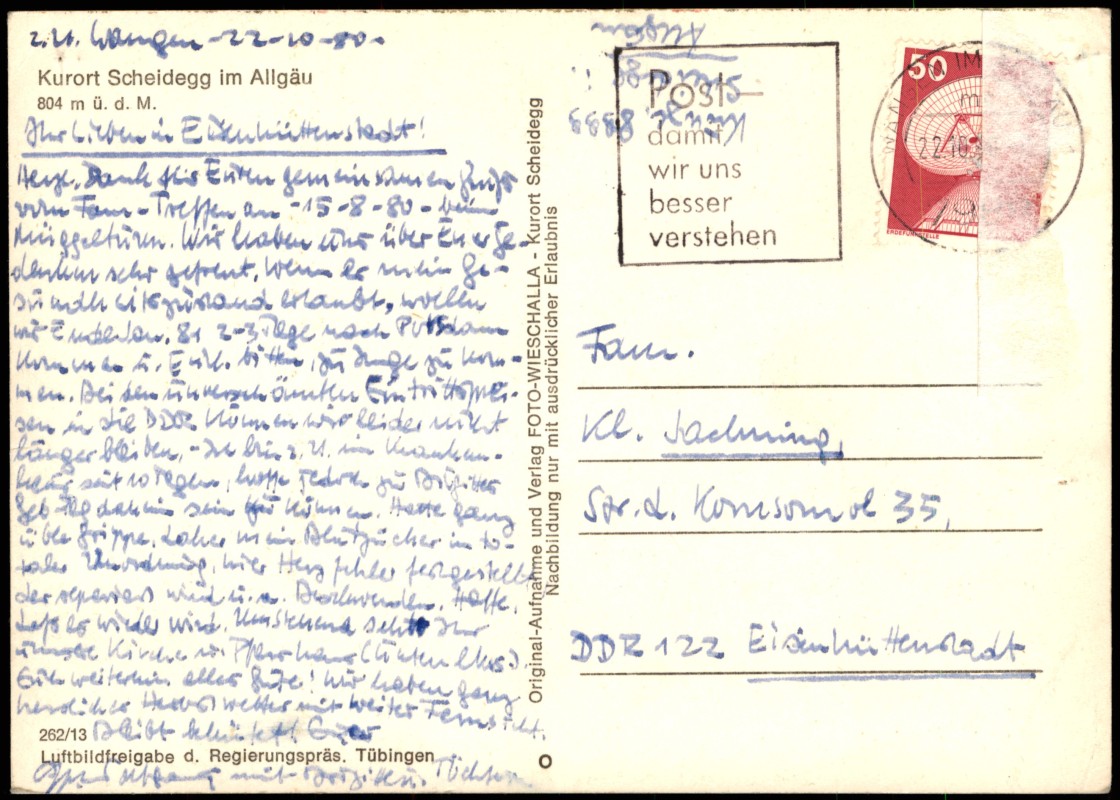 z.Zt. Wangen -22-10-80-
Kurort Scheidegg im Allgäu
804 m ü. d. M.
Ihr Lieben in Eisenhüttenstadt!
Herzl. Dank für Euren gemeinsamen Gruß
vom Fam-Treffen am -15-8-80- beim
Müggelturm. Wir haben uns über Euer Ge-
denken sehr gefreut. Wenn es mein Ge-
sundheitszustand erlaubt, wollen
wir Ende Jan. 81 2-3 Tage nach Potsdam
kommen u. Euch bitten, zu kom-
men. Bei den unverschämten Eintrittsprei-
sen in die DDR können wir leider nicht
länger bleiben. - Ich bin z.Zt. im Kranken-
haus seit 10 Tagen, hoffe jedoch zu Brigittes
Geb.Tag daheim sein zu können. Hatte ganz
üble Grippe, daher mein Blutzucker in to-
taler Unordnung, hier Herzfehler festgestellt,
der repariert wird u.a. Hoffe,
daß es wieder wird. Umstehend seht Ihr
unsere Kirche u. Pfarrhaus (unten lks)
Euch weiterhin alles Gute! Wir haben ganz
herrliches Herbstwetter mit weiter Fernsicht.
262/13 Bleibt behütet! Euer
Luftbildfreigabe d. Regierungspräs. Tübingen
mit Brigitte u. Töchtern
Original-Aufnahme und Verlag FOTO-WIESCHALLA - Kurort Scheidegg
Nachbildung nur mit ausdrücklicher Erlaubnis
8999
Scheidegg
Allgäu
Post-
damit
wir uns
besser
verstehen
50
ERDEFUNKSTELLE
WANGEN IM
22.10.
Fam.
Kl. Jachning,
Str. d. Komsomol 35,
DDR 122 Eisenhüttenstadt